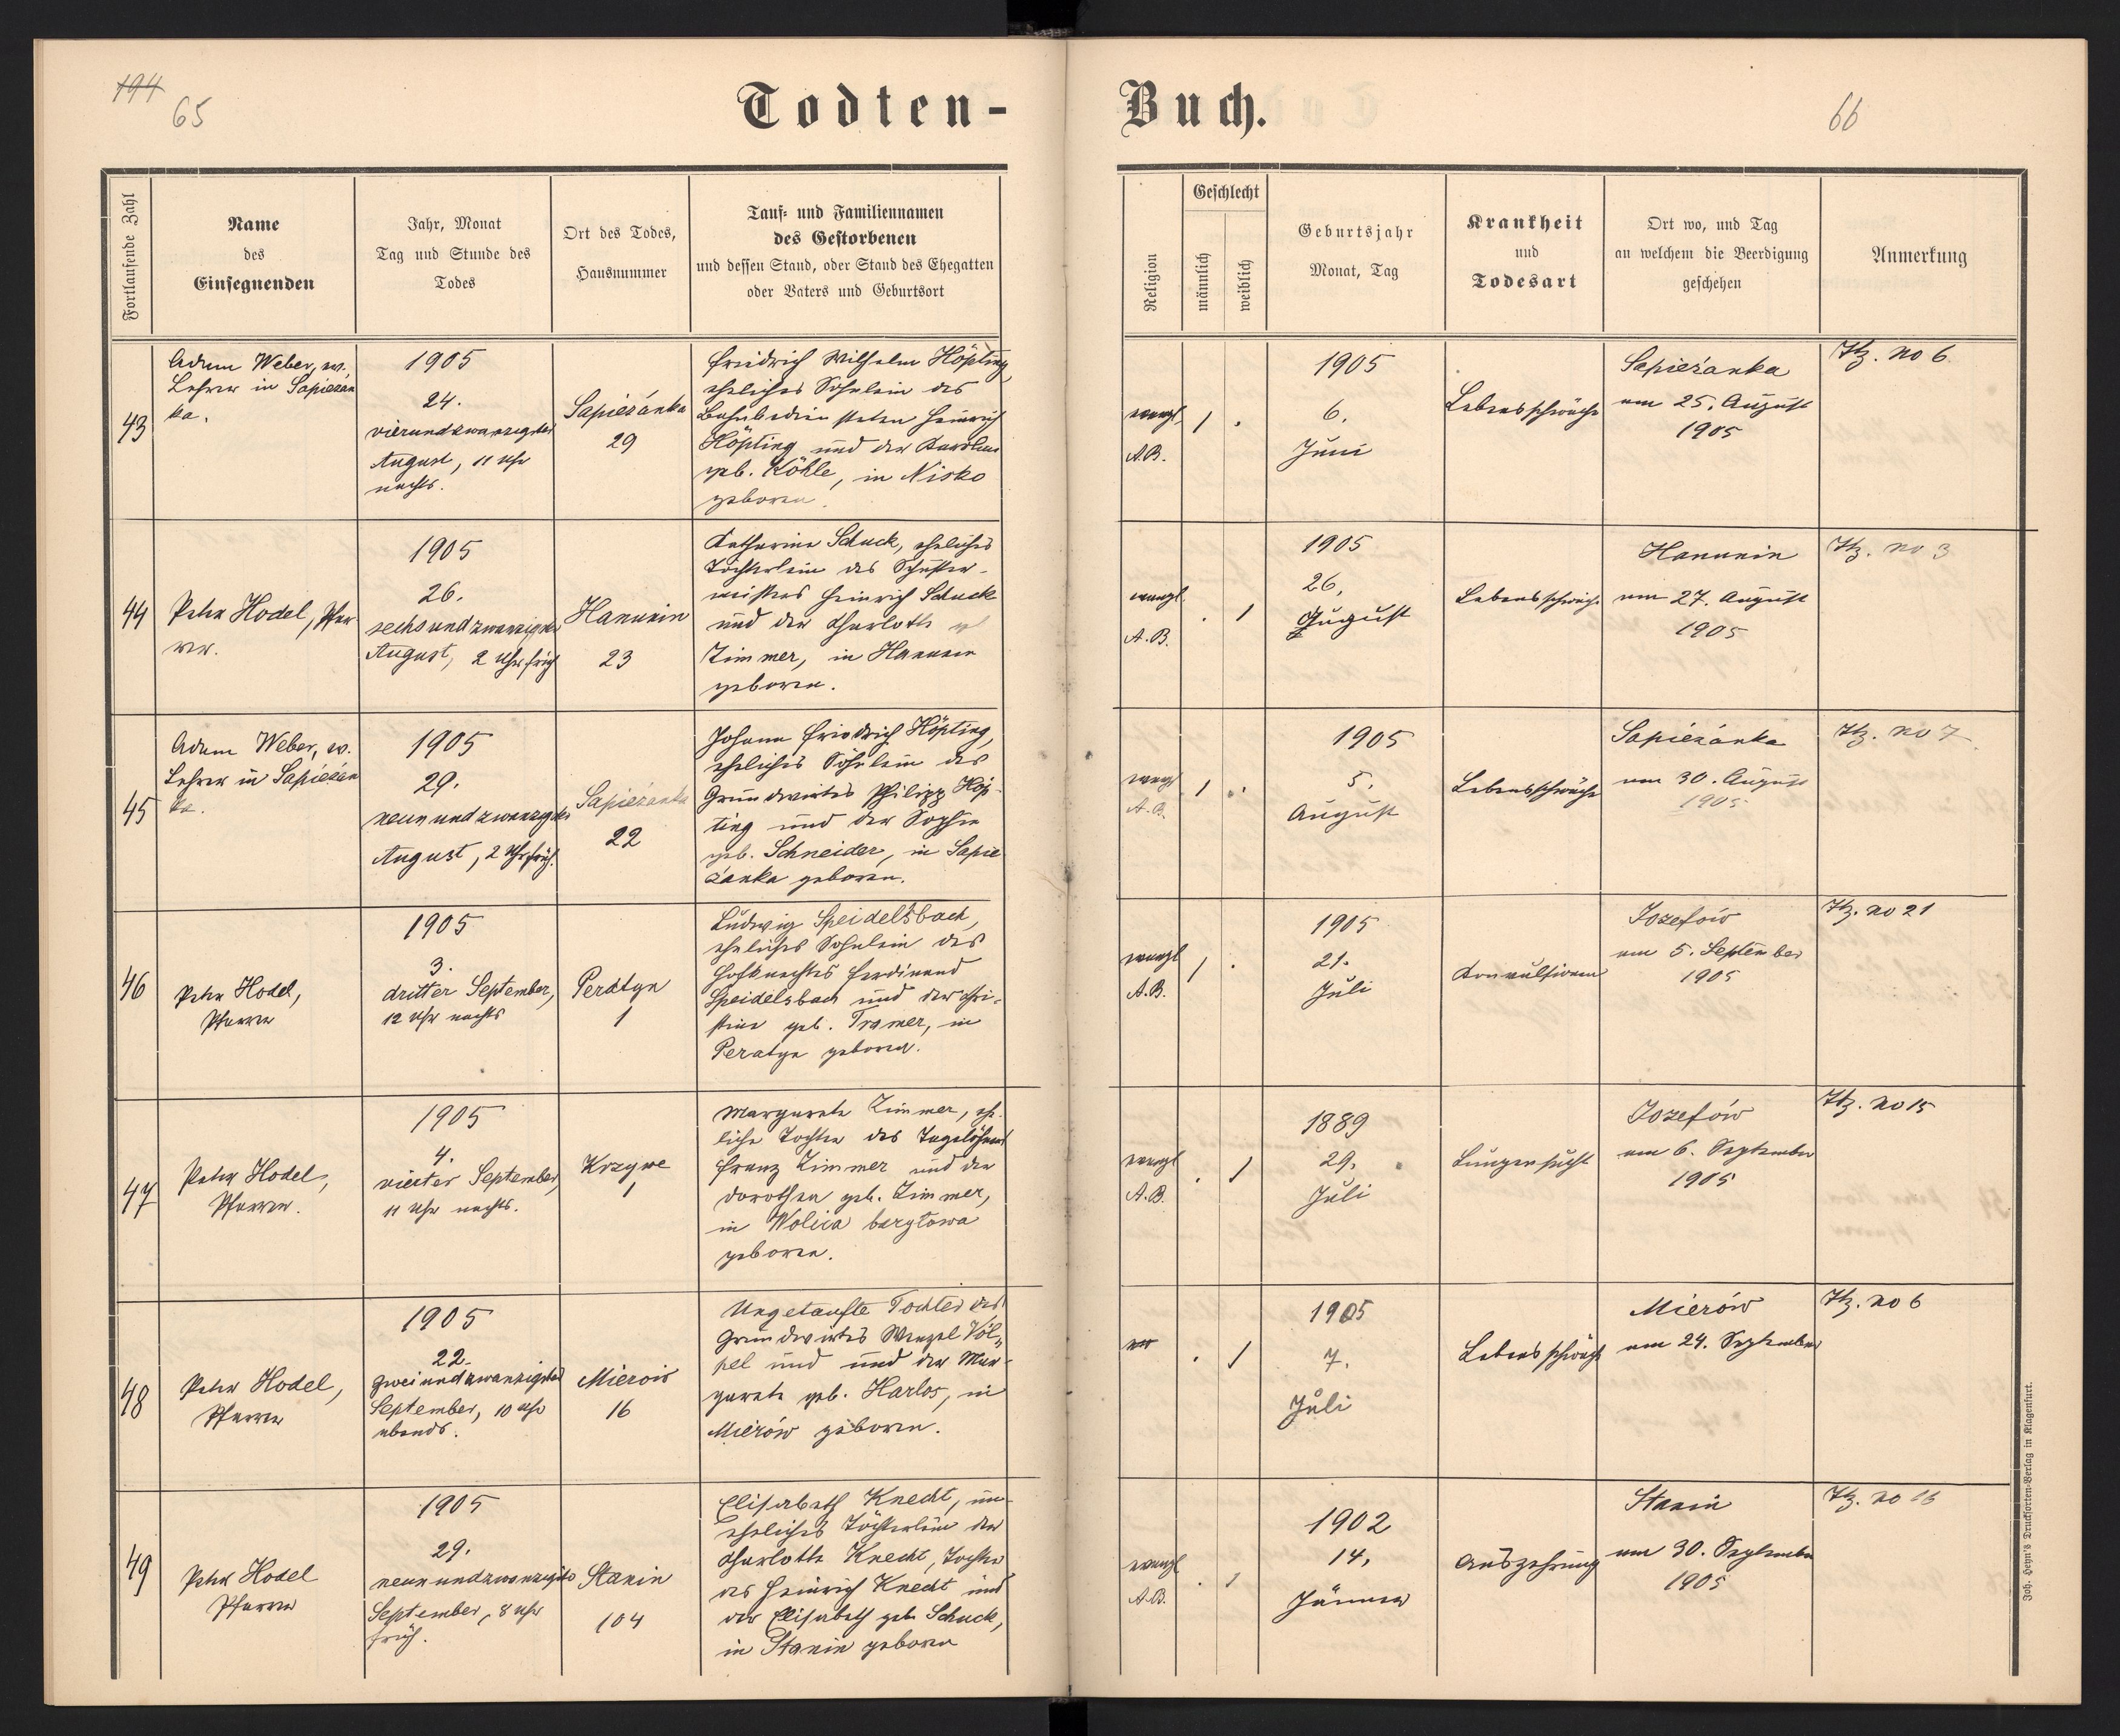 194
65
Todten-
Fortlaufende Zahl
Name
des
Einsegnenden
Jahr, Monat
Tag und Stunde des
Todes
Ort des Todes,
Hausnummer
Tauf- und Familiennamen
des Gestorbenen
und dessen Stand, oder Stand des Ehegatten
oder Vaters und Geburtsort
43
Adam Weber, ev.
Lehrer in Sapiezán
ka.
1905
24.
vierundzwanzigster
August, 11 Uhr
nachts.
Sapiezánka
29
Friedrich Wilhelm Höpting,
eheliches Söhnlein des
Bahnbediensteten Heinrich
Höpting und der Karoline
geb. Köhle, in Nisko
geboren.
44
Peter Hodel, Pfar
rer.
1905
26.
sechsundzwanzigster
August, 2 Uhr früh
Hanunin
23
Katharina Schuck, eheliches
Töchterlein des Schuster-
meisters Heinrich Schuck
und der Charlotte
Zimmer, in Hanunin
geboren.
45
Adam Weber, ev.
Lehrer in Sapiezán
ka.
1905
29.
neunundzwanzigster
August, 2 Uhr früh.
Sapiezanka
22
Johann Friedrich Höpting,
eheliches Söhnlein des
Grundwirtes Philipp Höp-
ting und der Sophie
geb. Schneider, in Sapie
żanka geboren.
46
Peter Hodel,
Pfarrer
1905
3.
dritter September,
12 Uhr nachts
Peratyn
1
Ludwig Speidelsbach,
eheliches Söhnlein des
Hofknechtes Ferdinand
Speidelsbach und der Chri-
stine geb. Tramer, in
Peratyn geboren.
47
Peter Hodel,
Pfarrer.
1905
4.
vierter September,
11 Uhr nachts.
Krzywe
1
Margareta Zimmer, ehe-
liche Tochter des Tagelöhners
Franz Zimmer und der
Dorothea geb. Zimmer,
in Wolica baryłowa
geboren.
48
Peter Hodel,
Pfarrer
1905
22.
zweiundzwanzigster
September, 10 Uhr
abends.
Mierów
16
Ungetaufte Tochter des
Grundwirtes Wenzel Völ-
pel und und der Mar-
gareta geb. Harlos, in
Mierów geboren.
49
Peter Hodel
Pfarrer
1905
29.
neunundzwanzigster
September, 8 Uhr
früh.
Stanin
104
Elisabeth Knecht, un-
eheliches Töchterlein der
Charlotte Knecht, Tochter
des Heinrich Knecht und
der Elisabeth geb. Schuck,
in Stanin geboren
Buch.
66
Religion
Geschlecht
männlich
weiblich
Geburtsjahr
Monat, Tag
Krankheit
und
Todesart
Ort wo, und Tag
an welchem die Beerdigung
geschehen
Anmerkung
evangl.
A.B.
1
.
1905
6.
Juni
Lebensschwäche
Sapieżanka
am 25. August
1905
Hz. no 6
evangl.
A.B.
.
1
1905
26.
August
Lebensschwäche
Hanunin
am 27. August
1905
Hz. no 3
evangl
A.B.
1
.
1905
5.
August
Lebensschwäche
Sapiezánka
am 30. August
1905
Hz. no 7
evangl
A.B.
1
.
1905
21.
Juli
Konvulsionen
Jozefów
am 5. September
1905
Hz. no 21
evangl
A.B.
.
1
1889
29.
Juli
Lungensucht
Jozefów
am 6. September
1905
Hz. no 15
.
1
1905
7.
Juli
Lebensschwäche
Mierów
am 24. September
Hz. no 6
evangl
A.B.
.
1
1902
14.
Jänner
Auszehrung
Stanin
am 30. September
1905
Hz. no 16
Joh. Heyn's Drucksorten-Verlag in Klagenfurt.